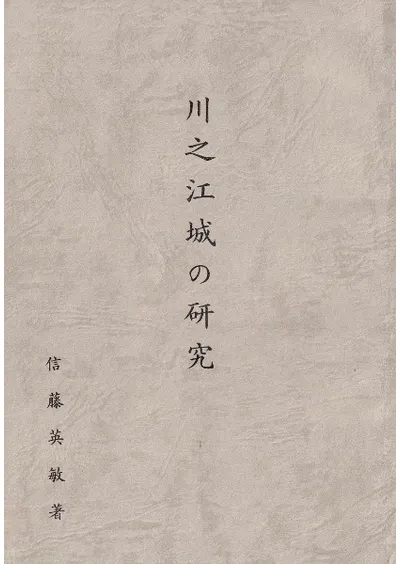 川之江城の研究
信藤英敏著